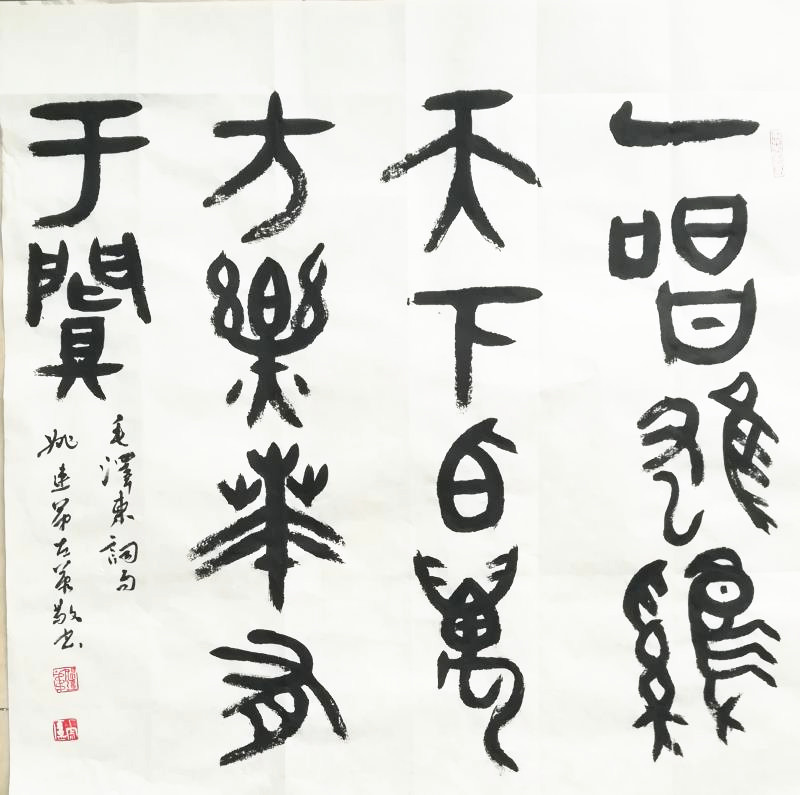 一唱雄鷄
天下白萬
方樂奏有
于闐
毛澤東詞句
姚左筆敬书